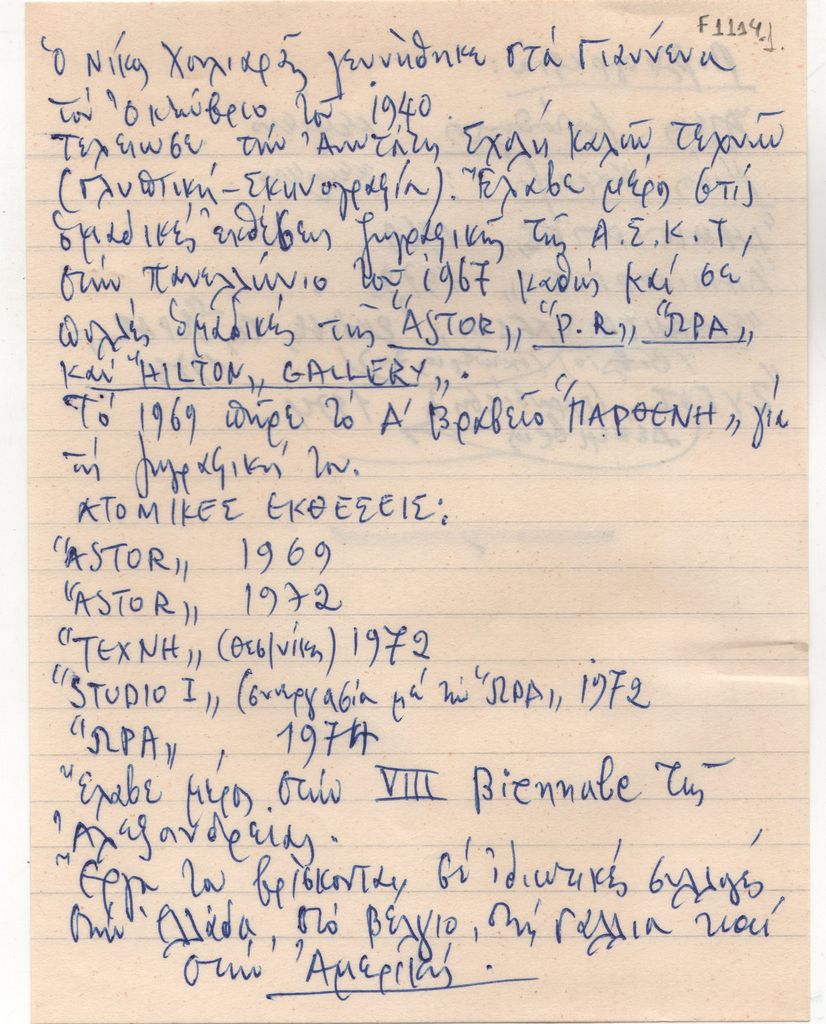 F1114.1.
Ὁ Νίκος Χουλιαρᾶς γεννήθηκε στά Γιάννενα
τόν Ὀκτώβριο τοῦ 1940
Τελείωσε τήν Ἀνωτάτη Σχολή Καλῶν Τεχνῶν
(Γλυπτική - Σκηνογραφία). Ἔλαβε μέρος στίς
ὁμαδικές ἐκθέσεις ζωγραφικῆς τῆς Α.Σ.Κ.Τ,
στήν πανελλήνιο τοῦ 1967 καθώς καί σέ
πολλές ὁμαδικές τῆς "ASTOR,, "P.R,, "ΩΡΑ,,
καί "HILTON,, GALLERY,,.
Τό 1969 πῆρε τό Α' βραβεῖο "ΠΑΡΘΕΝΗ,, γιά
τή ζωγραφική του.
ΑΤΟΜΙΚΕΣ ΕΚΘΕΣΕΙΣ:
"ASTOR,, 1969
"ASTOR,, 1972
"ΤΕΧΝΗ,, (Θεσ/νίκης) 1972
"STUDIO I,, (συνεργασία μέ τήν "ΩΡΑ,, 1972
"ΩΡΑ,, , 1974
Ἔλαβε μέρος στήν VIII Biennale τῆς
Ἀλεξανδρείας.
Ἔργα του βρίσκονται σέ ἰδιωτικές συλλογές
στήν Ἑλλάδα, στό Βέλγιο, στή Γαλλία καί
στήν Ἀμερική.